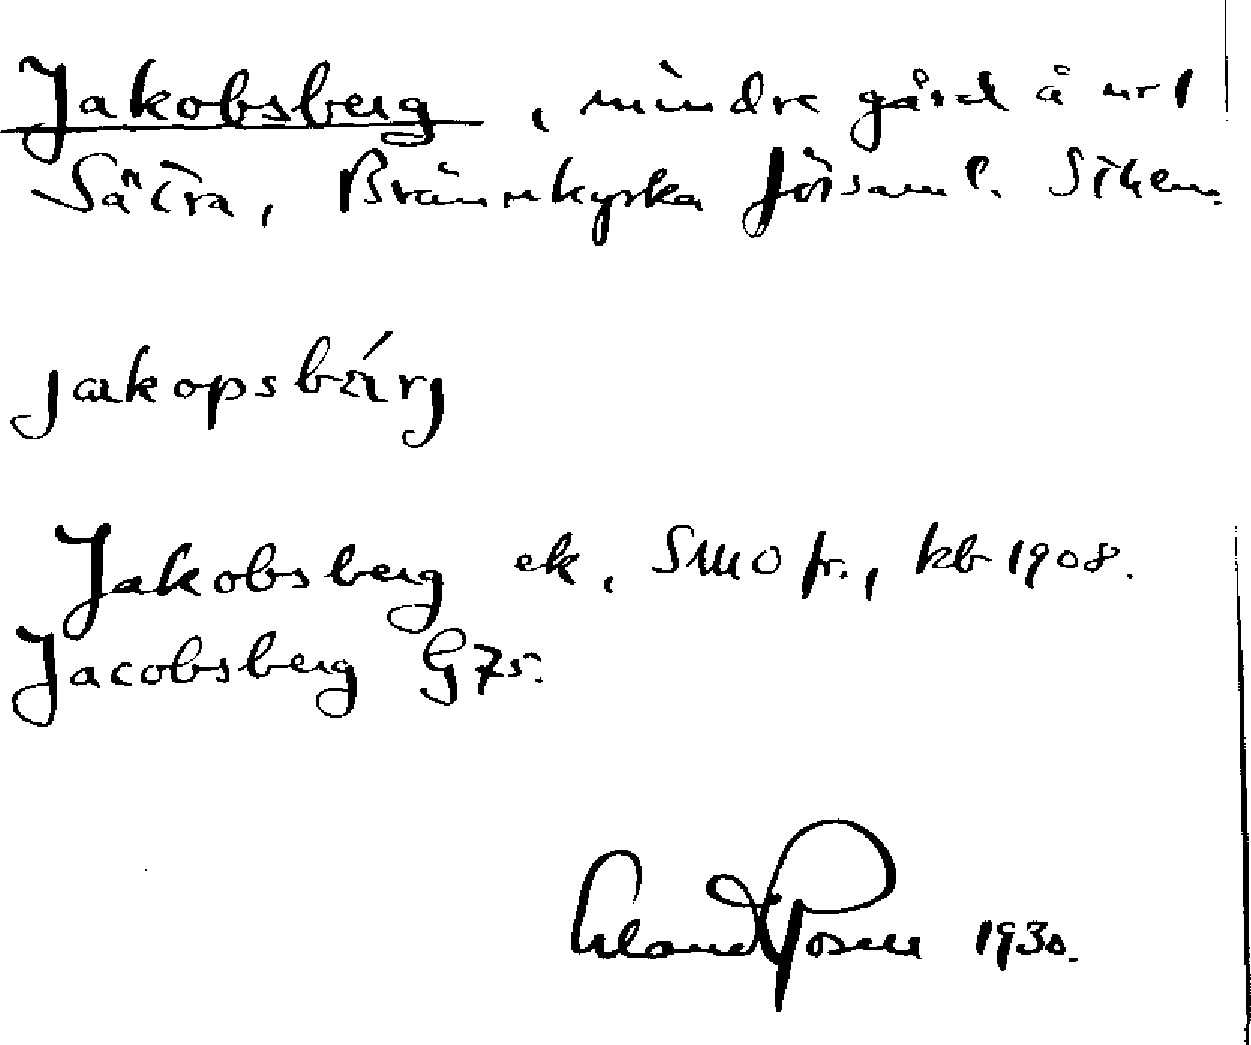 Jakobsberg, mindre gård å nr 1
Sätra, Brännkyrka förs:aml. Sthm.
jakopsbärj
Jakobsberg ek, SMO fr., kb 1908.
Jacobsberg G 75.
Erland Rosell 1930.